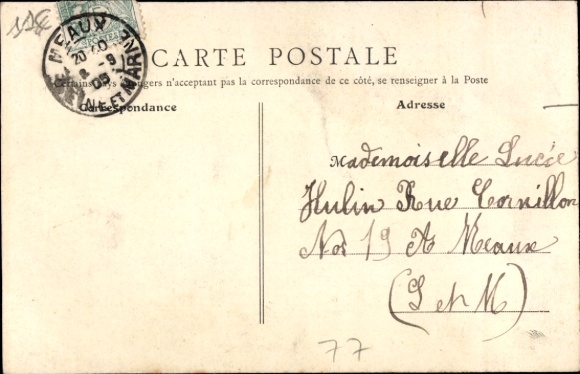 MEAUX
20 40
8 - 9
05
NE-ET-MARNE
CARTE POSTALE
Certains pays étrangers n'acceptant pas la correspondance de ce côté, se renseigner à la Poste
Correspondance
Adresse
Mademoiselle Lucie
Hulin Rue Cornillon
No 19 A Meaux
(S et M)
77